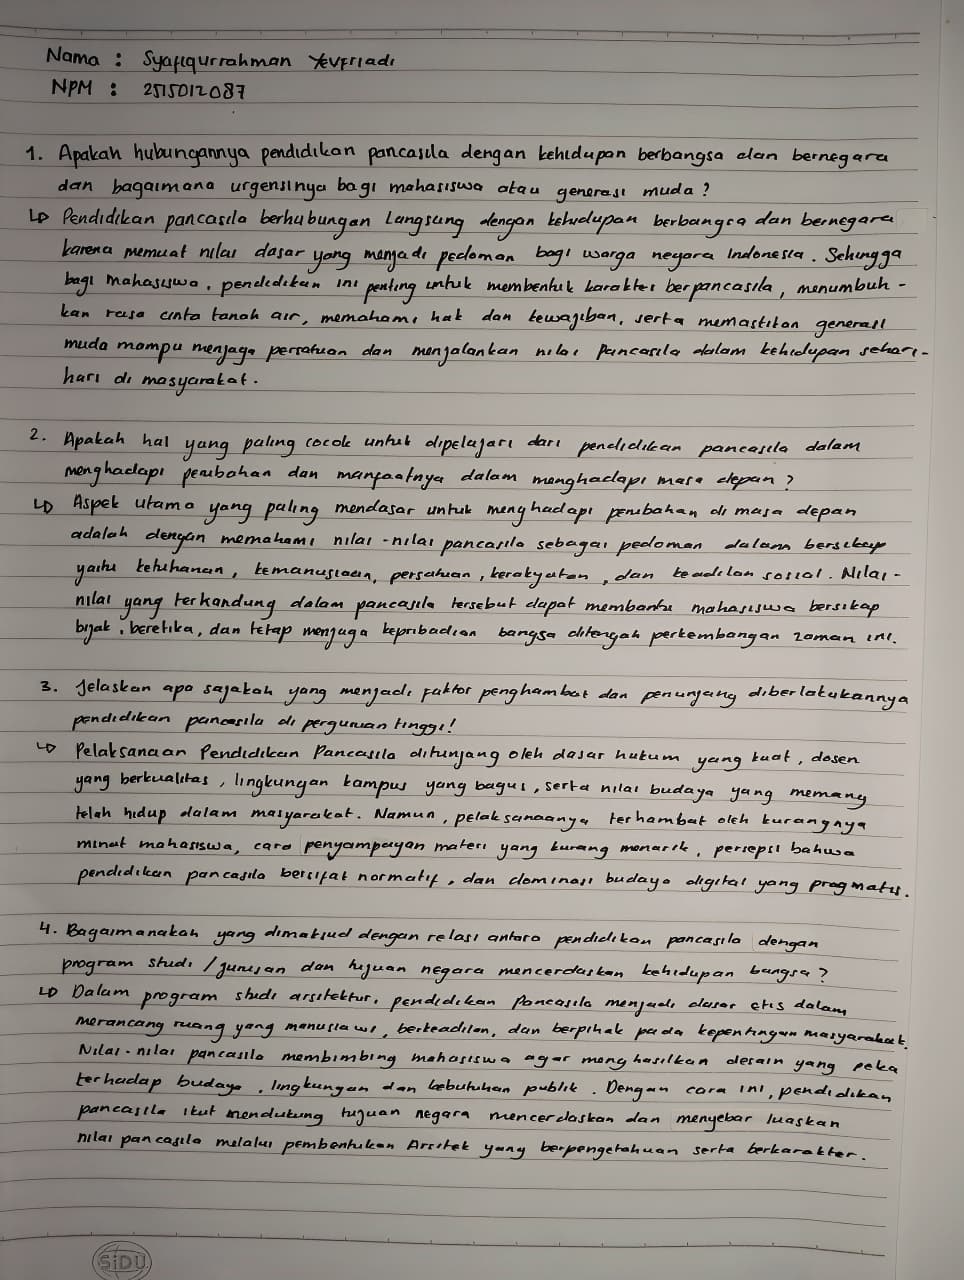 Nama : Syafiqurrahman Yevriadi
NPM : 2515012087
1. Apakah hubungannya pendidikan pancasila dengan kehidupan berbangsa dan bernegara
dan bagaimana urgensinya bagi mahasiswa atau generasi muda?
↳ Pendidikan pancasila berhubungan Langsung dengan kehidupan berbangsa dan bernegara
karena memuat nilai dasar yang menjadi pedoman bagi warga negara Indonesia. Sehingga
bagi mahasiswa, pendidikan ini penting untuk membentuk karakter berpancasila, menumbuh-
kan rasa cinta tanah air, memahami hak dan kewajiban, serta memastikan generasi
muda mampu menjaga persatuan dan menjalankan nilai Pancasila dalam kehidupan sehari-
hari di masyarakat.
2. Apakah hal yang paling cocok untuk dipelajari dari pendidikan pancasila dalam
menghadapi perubahan dan manfaatnya dalam menghadapi masa depan?
↳ Aspek utama yang paling mendasar untuk menghadapi perubahan di masa depan
adalah dengan memahami nilai-nilai pancasila sebagai pedoman dalam bersikap
yaitu ketuhanan, kemanusiaan, persatuan, kerakyatan, dan keadilan sosial. Nilai-
nilai yang terkandung dalam pancasila tersebut dapat membantu mahasiswa bersikap
bijak, beretika, dan tetap menjaga kepribadian bangsa ditengah perkembangan zaman ini.
3. Jelaskan apa sajakah yang menjadi faktor penghambat dan penunjang diberlakukannya
pendidikan pancasila di perguruan tinggi!
↳ Pelaksanaan Pendidikan Pancasila ditunjang oleh dasar hukum yang kuat, dosen
yang berkualitas, lingkungan kampus yang bagus, serta nilai budaya yang memang
telah hidup dalam masyarakat. Namun, pelaksanaanya terhambat oleh kurangnya
minat mahasiswa, cara penyampayan materi yang kurang menarik, persepsi bahwa
pendidikan pancasila bersifat normatif, dan dominasi budaya digital yang pragmatis.
4. Bagaimanakah yang dimaksud dengan relasi antara pendidikan pancasila dengan
program studi/jurusan dan tujuan negara mencerdaskan kehidupan bangsa?
↳ Dalam program studi arsitektur, pendidikan Pancasila menjadi dasar etis dalam
merancang ruang yang manusiawi, berkeadilan, dan berpihak pada kepentingan masyarakat.
Nilai-nilai pancasila membimbing mahasiswa agar menghasilkan desain yang peka
terhadap budaya, lingkungan dan kebutuhan publik. Dengan cara ini, pendidikan
pancasila ikut mendukung tujuan negara mencerdaskan dan menyebar luaskan
nilai pancasila melalui pembentukan Arsitek yang berpengetahuan serta berkarakter.
SiDU